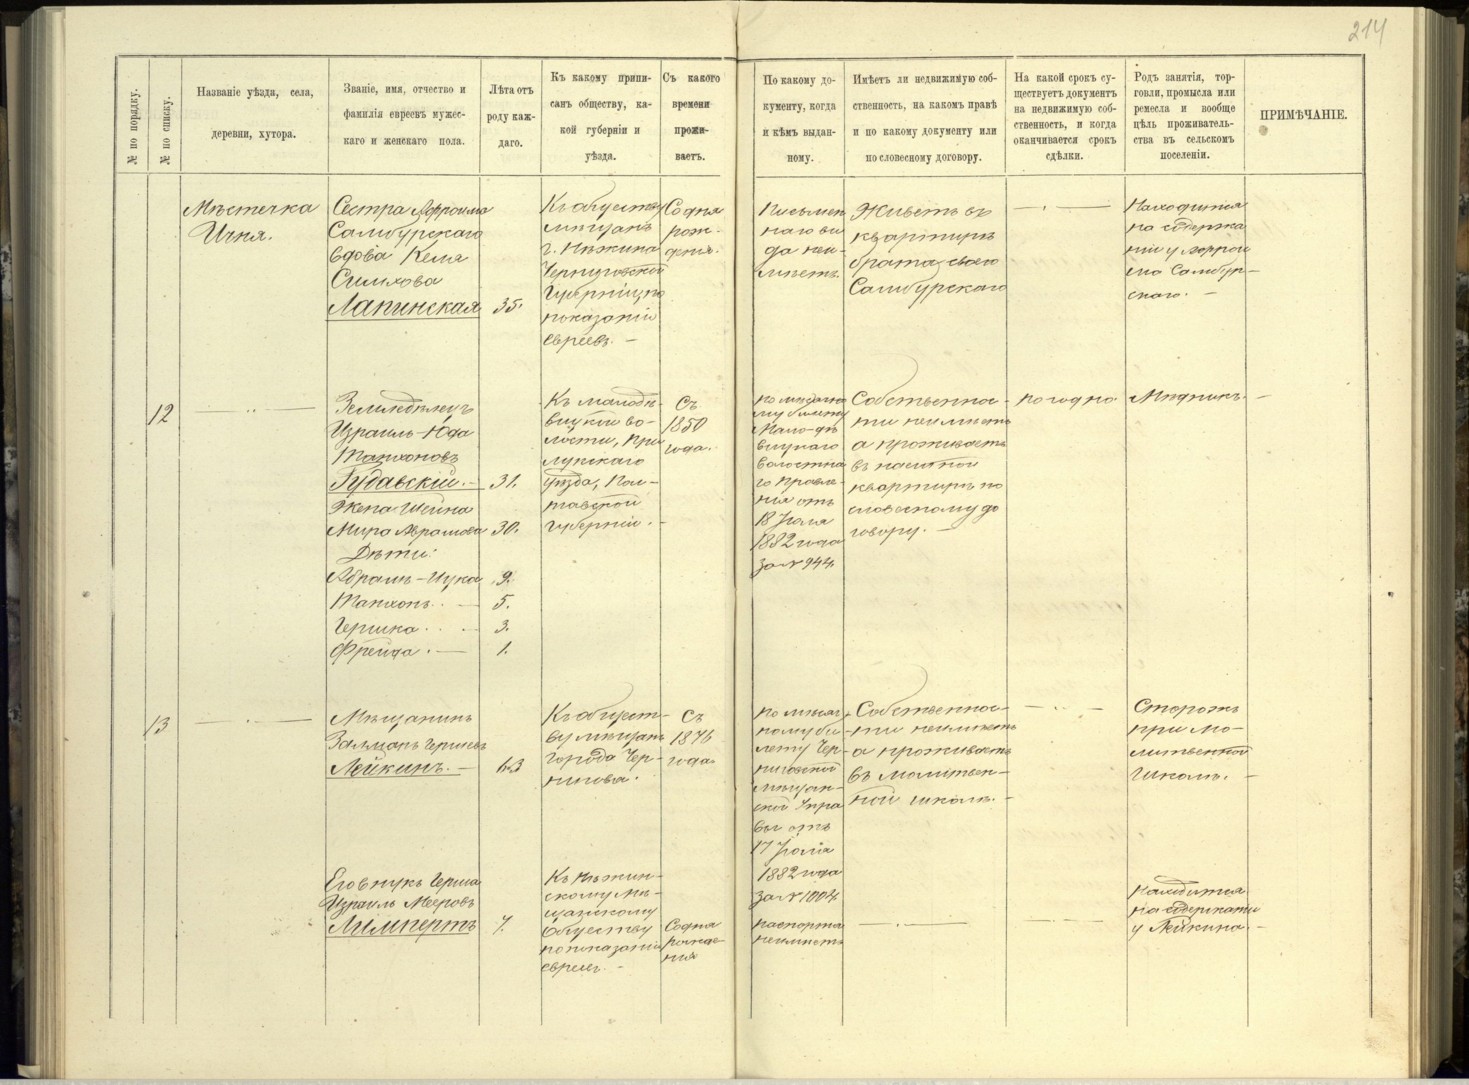 214
№ по порядку.
№ по списку.
Названіе уѣзда, села,
деревни, хутора.
Званіе, имя, отчество и
фамилія евреевъ мужес-
каго и женскаго пола.
Лѣта отъ
роду каж-
даго.
Къ какому припи-
санъ обществу, ка-
кой губерніи и
уѣзда.
Съ какого
времени
прожи-
ваетъ.
По какому до-
кументу, когда
и кѣмъ выдан-
ному.
Имѣетъ ли недвижимую соб-
ственность, на какомъ правѣ
и по какому документу или
по словесному договору.
На какой срокъ су-
ществуетъ документъ
на недвижимую соб-
ственность, и когда
оканчивается срокъ
сдѣлки.
Родъ занятія, тор-
говли, промысла или
ремесла и вообще
цѣль проживатель-
ства въ сельскомъ
поселеніи.
ПРИМѢЧАНІЕ.
Мѣстечка
Ичня.
Сестра Афроима
Самбурскаго
вдова Келя
Симхова
Лапинская
35.
Къ обществу
мѣщанъ
г. Нѣжина
Черниговской
Губерніи, по
показанію
евреевъ. –
Со дня
рож-
денія.
Письмен
наго ви
да не и-
мѣетъ.
Живетъ въ
квартирѣ
брата своего
Самбурскаго
Находится
на содержа
ніи у Афрои
ма Самбур-
скаго. –
12
Земледѣлецъ
Израиль-Юда
Танхоновъ
Гудавскій. –
31.
Жена Шейна
Мира Аврамова
30.
Дѣти:
Абрамъ-Ицка
9.
Танхонъ. –
5.
Гершка. –
3.
Фрейда. –
1.
Къ Малодѣ-
вицкой во-
лости, При
лукскаго
уѣзда, Пол-
тавской
губерніи. –
Съ
1850
года.
По
Мало-дѣ
вицкаго
волостна
го Правле-
нія отъ
18 Іюля
1882 года
за № 944.
Собственнос-
ти не имѣетъ
а проживаетъ
въ наемной
квартирѣ по
словесному до
говору. –
погодно
Мѣдникъ. –
13
Мѣщанинъ
Залманъ Гершевъ
Лейкинъ. –
63
Къ общест-
ву мѣщанъ
города Чер-
нигова.
Съ
1876
года.
По
билету Чер-
ниговской
мѣщан-
ской Упра
вы отъ
17 Іюля
1882 года
за № 1004
Собственнос-
ти не имѣетъ
а проживаетъ
въ молитвен-
ной школѣ. –
Сторожъ
при мо-
литвенной
школѣ. –
Его внукъ Герша
Израиль Мееровъ
Лимпертъ
7.
Къ Нѣжин-
скому мѣ-
щанскому
обществу
по показанію
евреевъ. –
Со дня
рожде-
нія
паспорта
не имѣетъ
находится
на содержаніи
у Лейкина. –